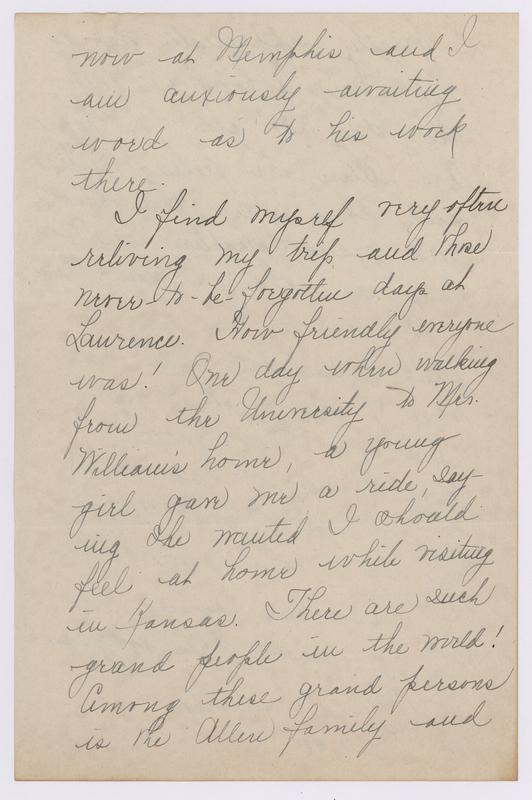 now at Memphis and I
am anxiously awaiting
word as to his work
there.
I find myself very often
reliving my trip and those
never-to-be-forgotten days at
Laurence. How friendly everyone
was! One day when walking
from the University to Mrs.
William's home, a young
girl gave me a ride, say-
ing she wanted I should
feel at home while visiting
in Kansas. There are such
grand people in the world!
Among these grand persons
is the Allen family and